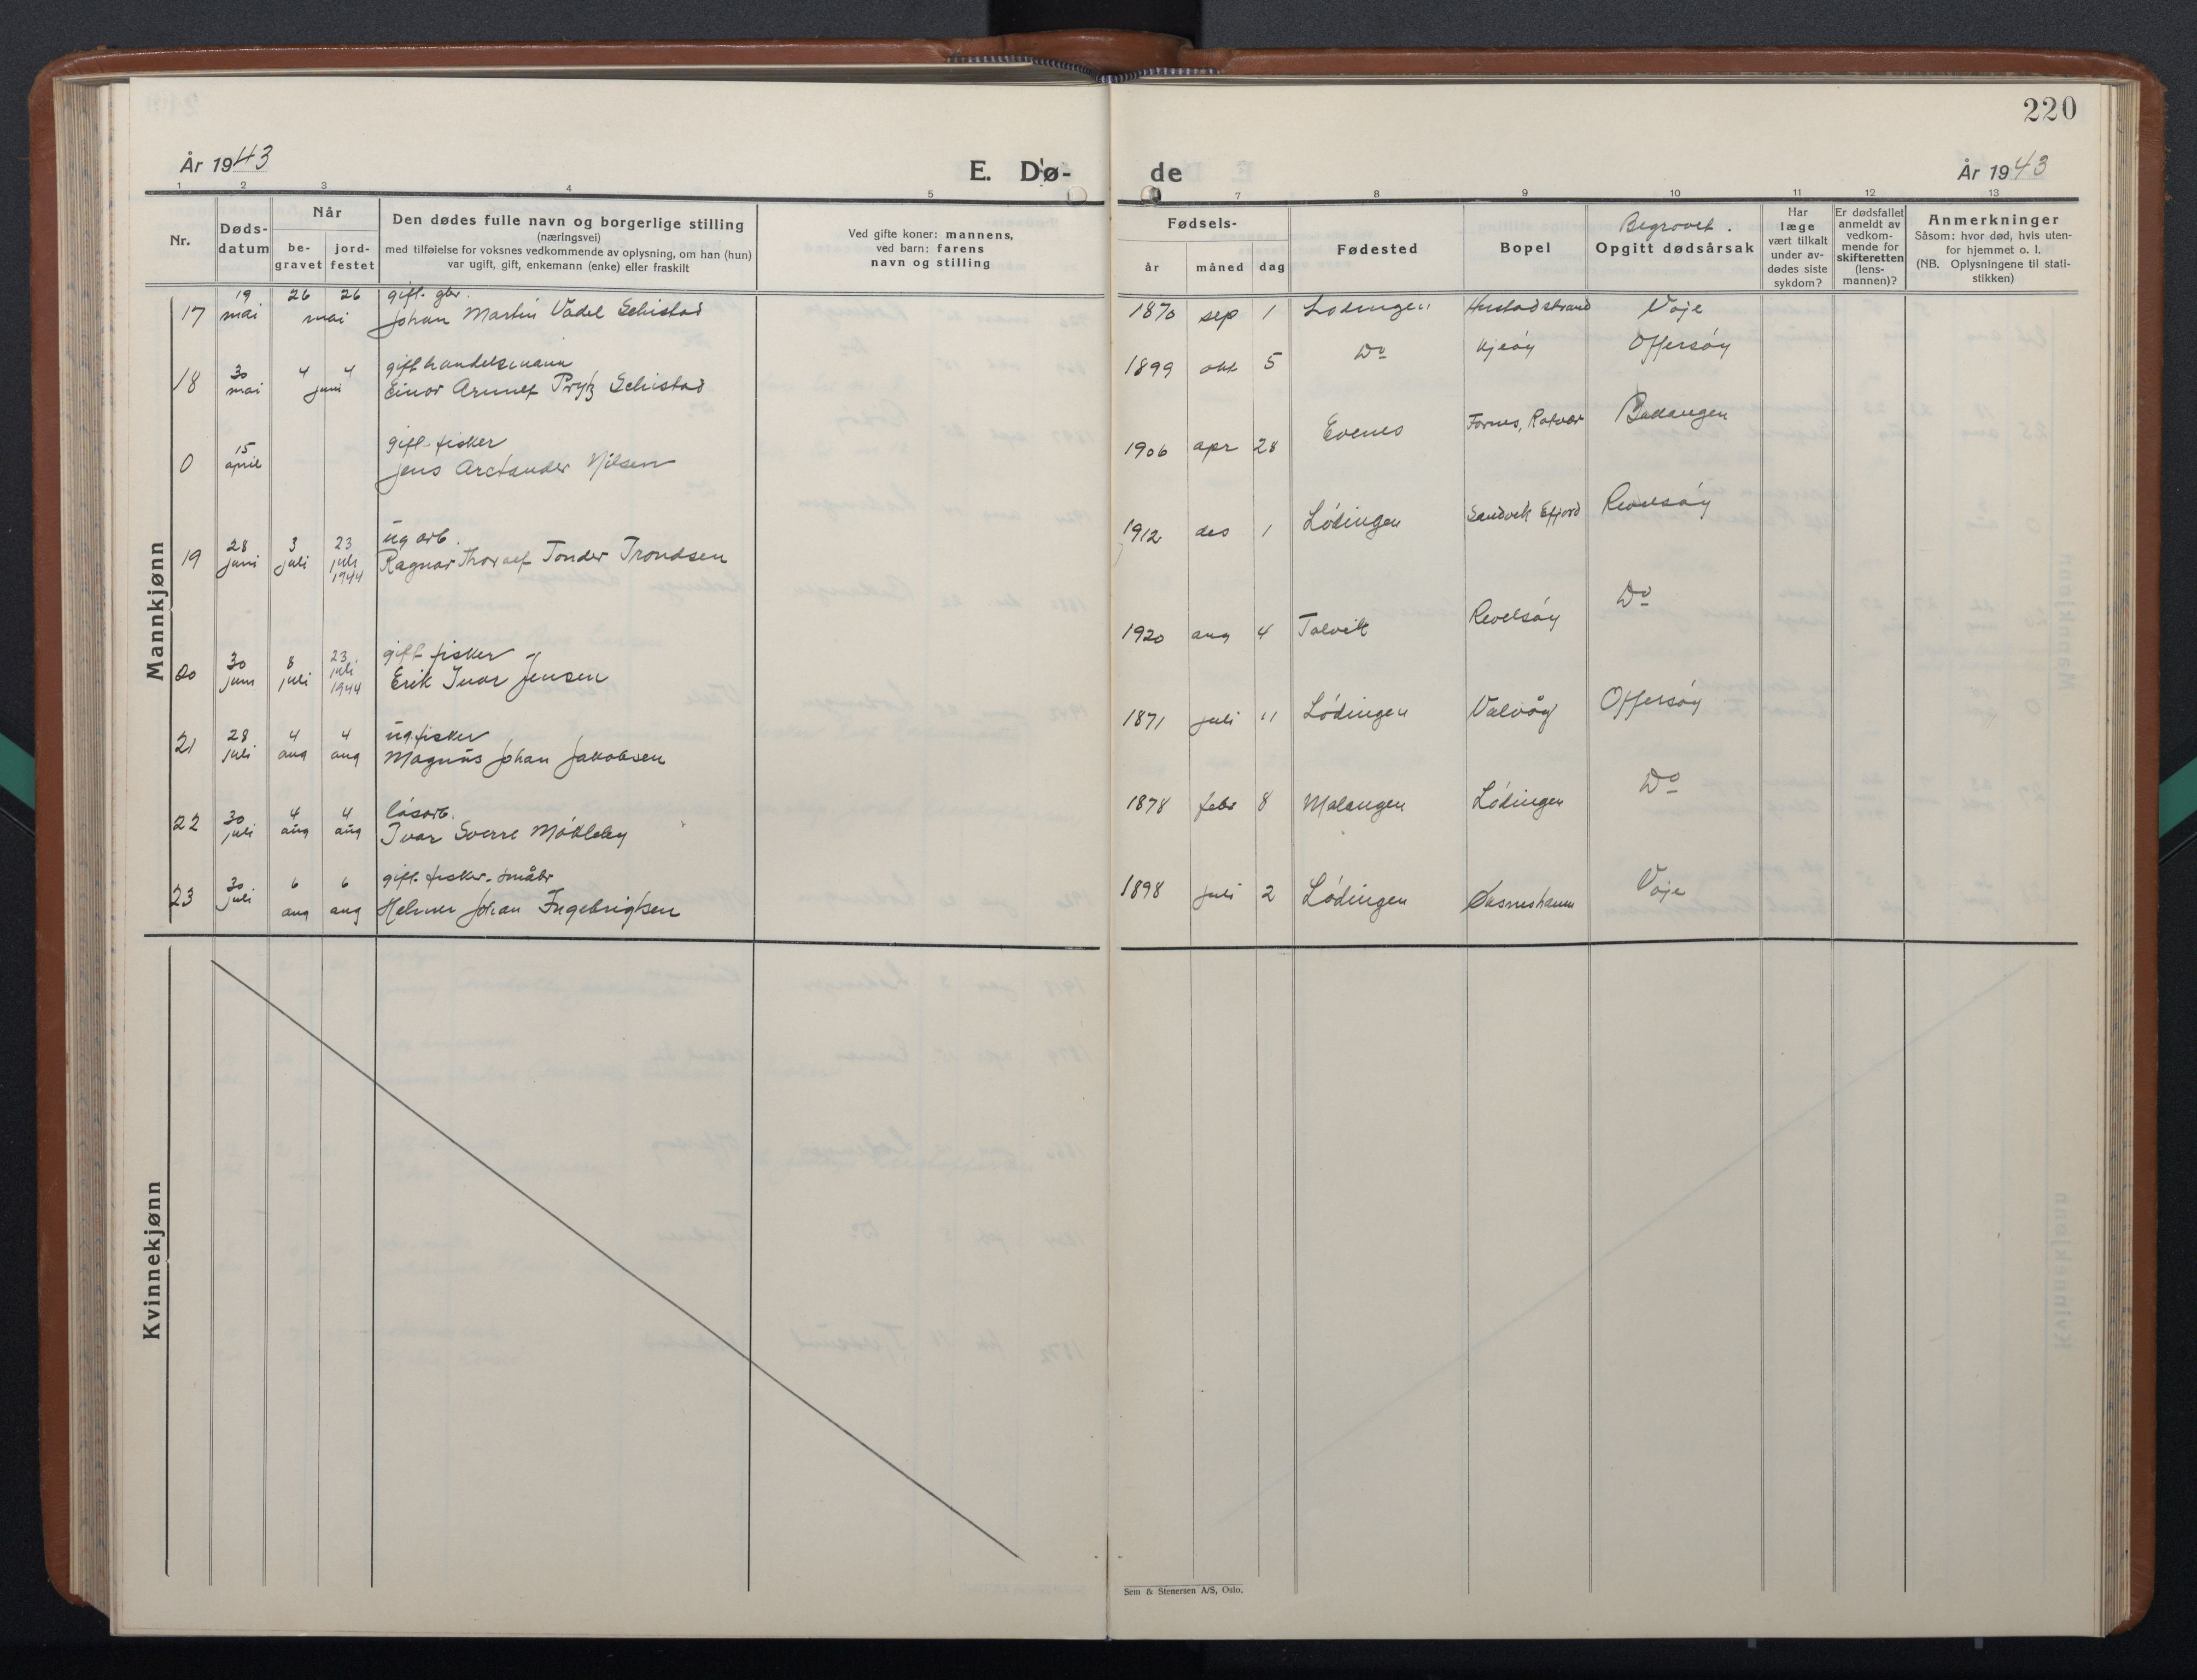 220
År 1943
E. Dø-
de
År 1943
1 2 3 4 5
7 8 9 10 11 12 13
Nr.
Døds-
datum
Når
be-
gravet
jord-
festet
Den dødes fulle navn og borgerlige stilling
(næringsvei)
med tilføielse for voksnes vedkommende av oplysning, om han (hun)
var ugift, gift, enkemann (enke) eller fraskilt
Ved gifte koner: mannens,
ved barn: farens
navn og stilling
Fødsels-
år måned dag
Fødested
Bopel
Begravet.
Opgitt dødsårsak
Har
læge
vært tilkalt
under av-
dødes siste
sykdom?
Er dødsfallet
anmeldt av
vedkom-
mende for
skifteretten
(lens-
mannen)?
Anmerkninger
Såsom: hvor død, hvis uten-
for hjemmet o. l.
(NB. Oplysningene til stati-
stikken)
Mannkjønn
19 26 26 gift. gbr.
17 mai mai Johan Martin Vadel Schistad
1870 sep 1 Lødingen Hustadstrand Våje
30 4 4 gift handelsmann
18 mai juni Einar Arnulf Prytz Schistad
1899 okt 5 Do Kjeøy Offersøy
15 gift fisker
0 april Jens Arctander Nilsen
1906 apr 28 Evenes Fornes, Rotvær Ballangen
28 3 23 ug arb.
19 juni juli juli 1944 Ragnar Thoralf Tonder Trondsen
1912 des 1 Lødingen Sandvik Efjord Revelsøy
30 8 23 gift fisker
20 juni juli juli 1944 Erik Ivar Jensen
1920 aug 4 Talvik Revelsøy Do
28 4 4 ug. fisker
21 juli aug aug Magnus Johan Jakobsen
1871 juli 11 Lødingen Valvåg Offersøy
30 4 4 løsarb.
22 juli aug aug Ivar Sverre Møkleby
1878 febr 8 Malangen Lødingen Do
30 6 6 gift. fisker - småbr
23 juli aug aug Helmer Johan Ingebrigtsen
1898 juli 2 Lødingen Våje
Kvinnekjønn
Sem & Stenersen A/S, Oslo.